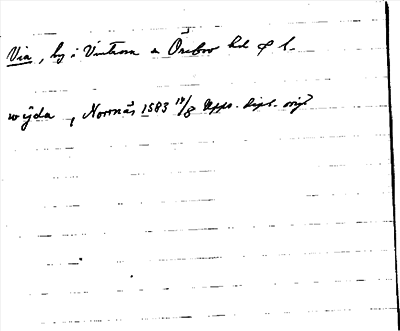 Via, by i Vintrosa sn Örebro hd o l.
wijda, Norrnäs 1583 19/8 Upps. dipl. orig